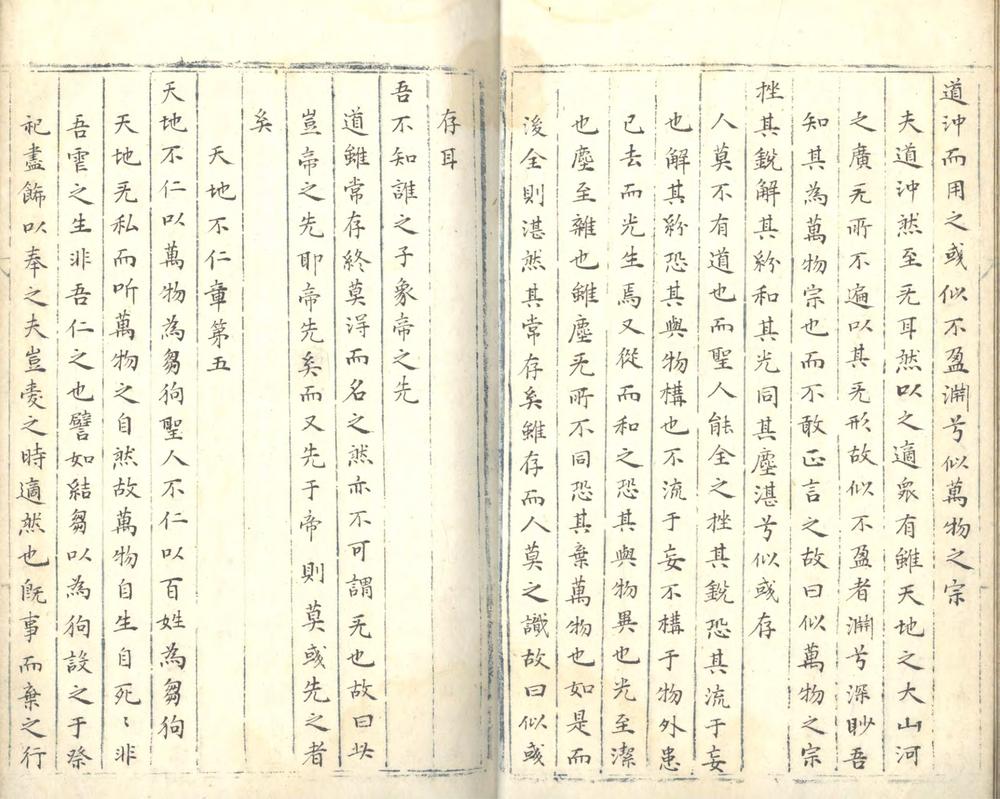 道沖而用之或似不盈淵兮似萬物之宗
夫道沖然至无耳然以之適衆有雖天地之大山河
之廣无所不遍以其无形故似不盈者淵兮深眇吾
知其為萬物宗也而不敢正言之故曰似萬物之宗
挫其銳解其紛和其光同其塵湛兮似或存
人莫不有道也而聖人能全之挫其銳恐其流于妄
也解其紛恐其與物構也不流于妄不構于物外患
已去而光生焉又從而和之恐其與物異也光至潔
也塵至雜也雖塵无所不同恐其棄萬物也如是而
後全則湛然其常存矣雖存而人莫之識故曰似或
存耳
吾不知誰之子象帝之先
道雖常存終莫淂而名之然亦不可謂无也故曰此
豈帝之先耶帝先矣而又先于帝則莫或先之者
矣
天地不仁章第五
天地不仁以萬物為芻狗聖人不仁以百姓為芻狗
天地无私而听萬物之自然故萬物自生自死〻非
吾虐之生非吾仁之也譬如結芻以為狗設之于祭
祀盡飾以奉之夫豈愛之時適然也既事而棄之行